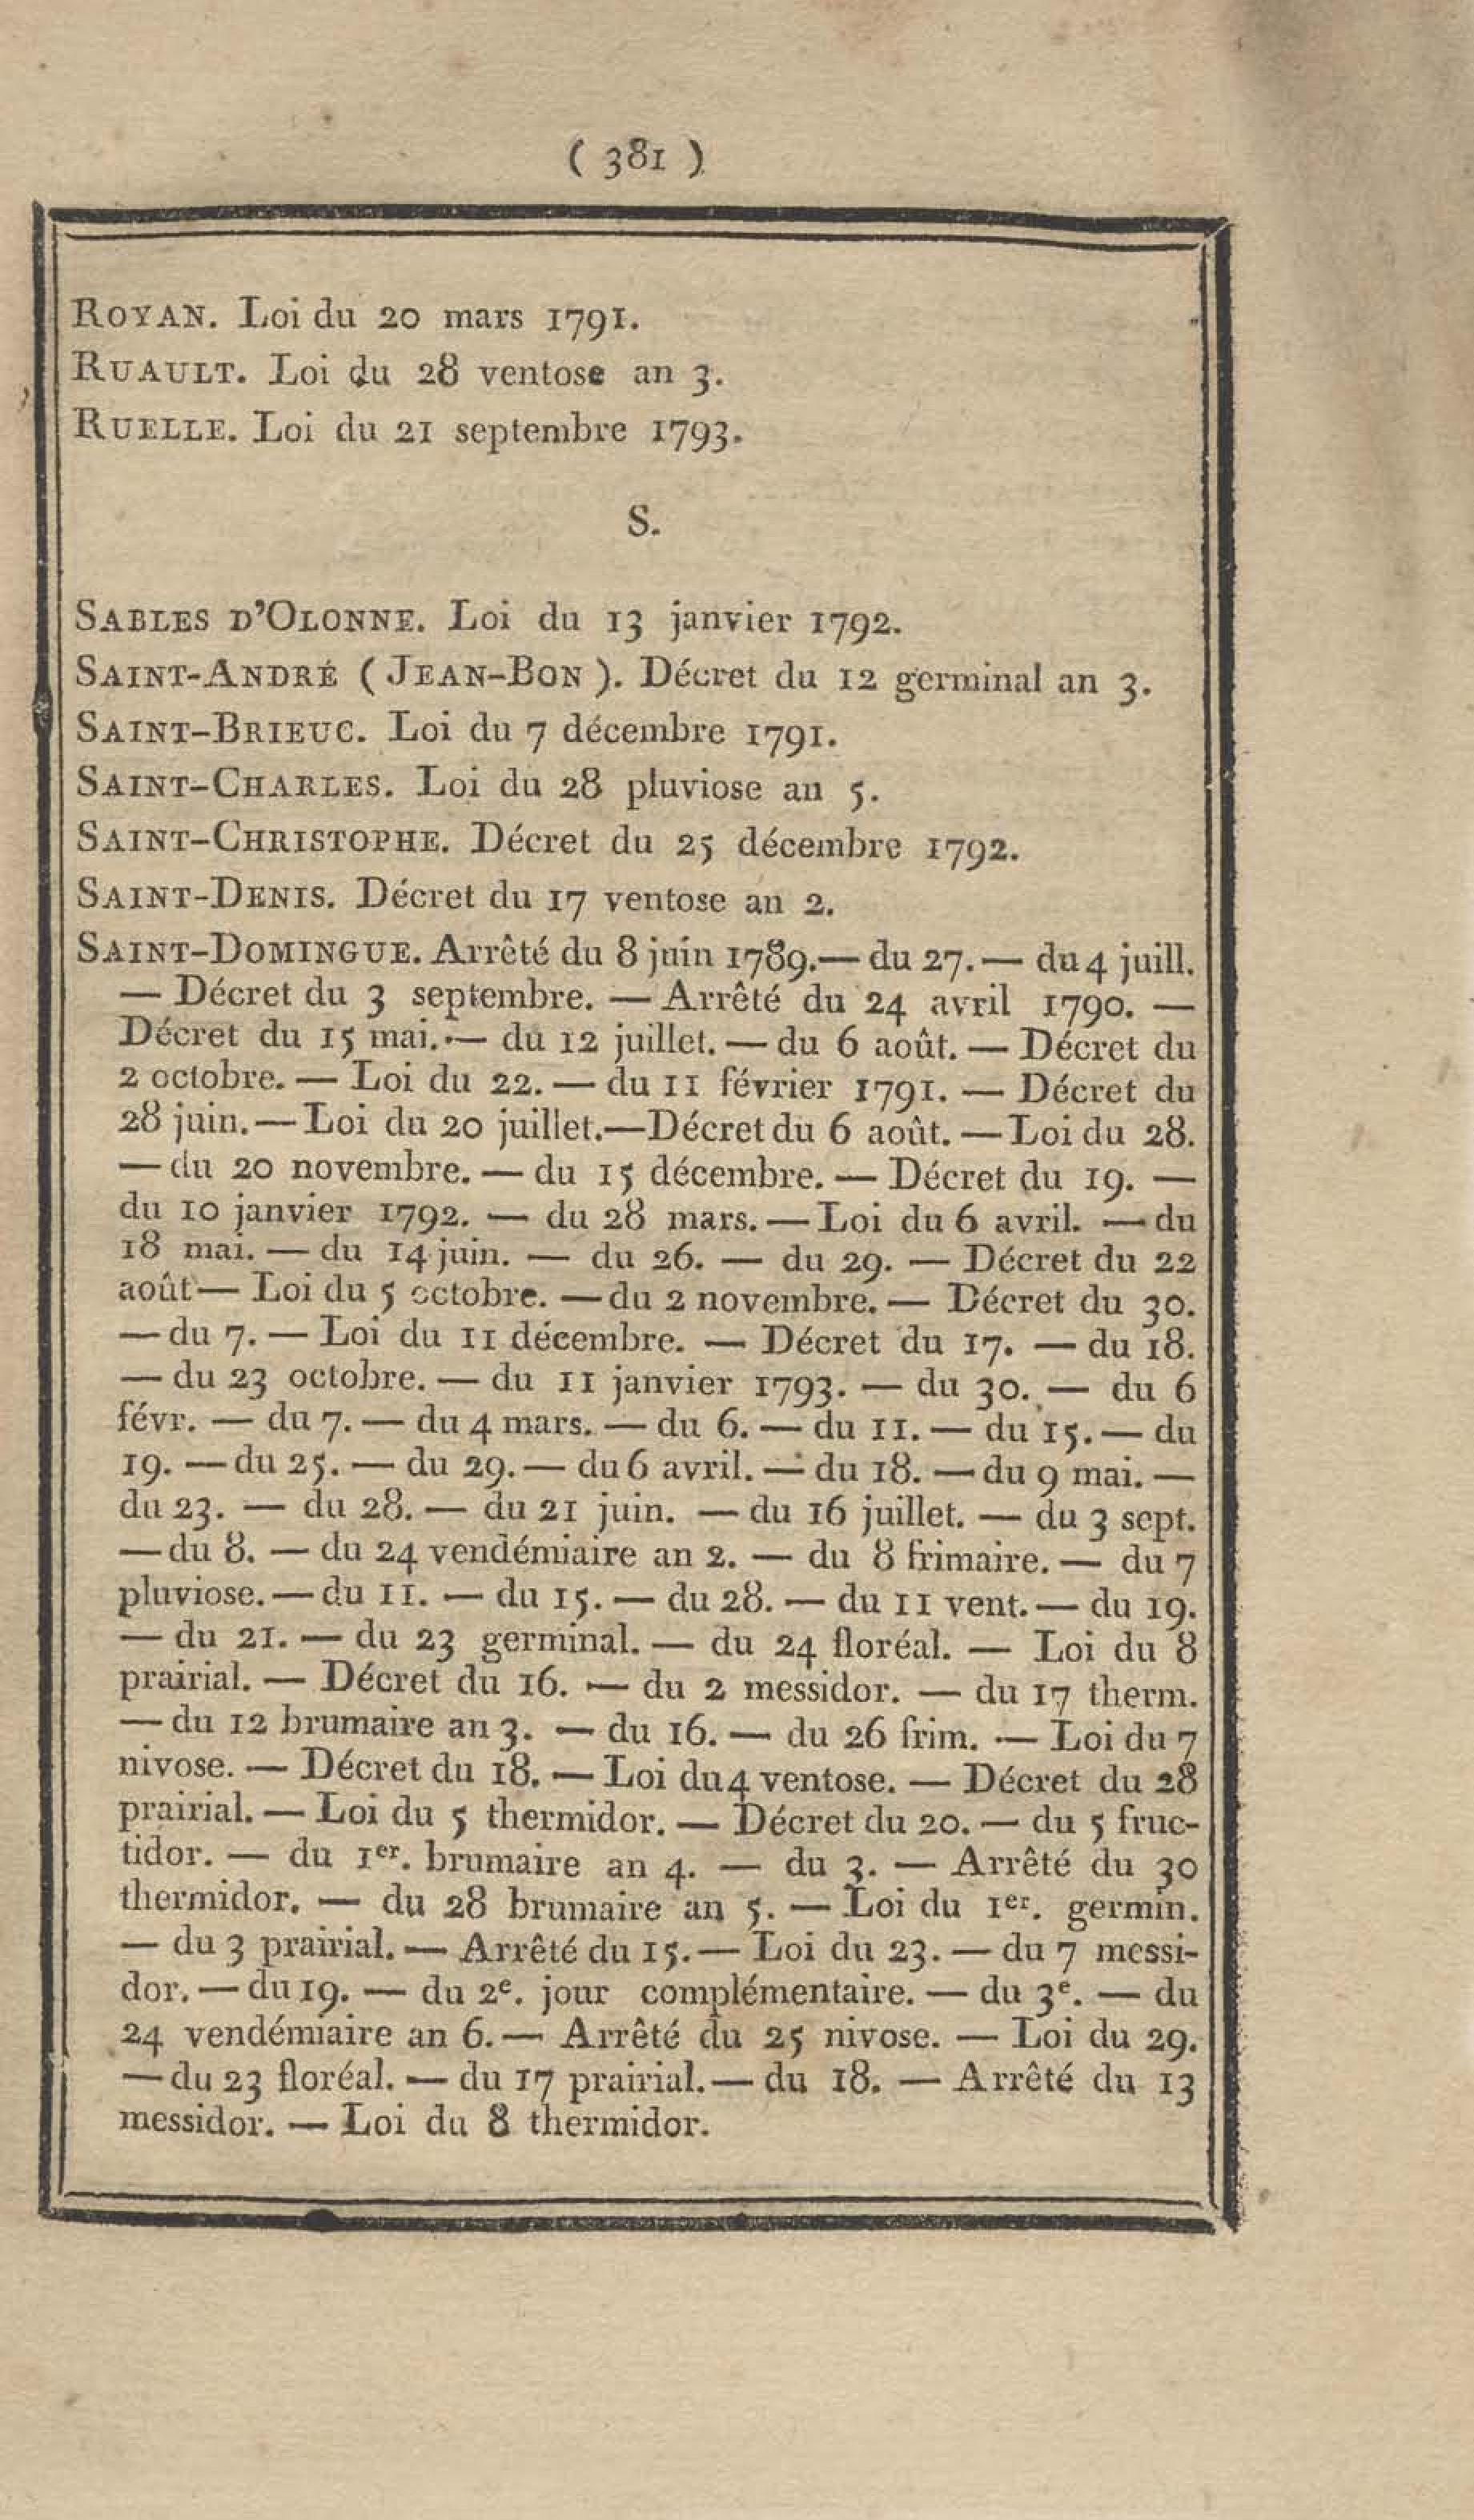 ( 381 )
ROYAN. Loi du 20 mars 1791.
RUAULT. Loi du 28 ventose an 3.
RUELLE. Loi du 21 septembre 1793.
S.
SABLES D'OLONNE. Loi du 13 janvier 1792.
SAINT-ANDRÉ ( JEAN-BON ). Décret du 12 germinal an 3.
SAINT-BRIEUC. Loi du 7 décembre 1791.
SAINT-CHARLES. Loi du 28 pluviose an 5.
SAINT-CHRISTOPHE. Décret du 25 décembre 1792.
SAINT-DENIS. Décret du 17 ventose an 2.
SAINT-DOMINGUE. Arrêté du 8 juin 1789.— du 27. — du 4 juill.
— Décret du 3 septembre. — Arrêté du 24 avril 1790. —
Décret du 15 mai. — du 12 juillet. — du 6 août. — Décret du
2 octobre. — Loi du 22. — du 11 février 1791. — Décret du
28 juin. — Loi du 20 juillet.—Décret du 6 août. — Loi du 28.
— du 20 novembre. — du 15 décembre. — Décret du 19. —
du 10 janvier 1792. — du 28 mars. — Loi du 6 avril. — du
18 mai. — du 14 juin. — du 26. — du 29. — Décret du 22
août — Loi du 5 octobre. — du 2 novembre. — Décret du 30.
— du 7. — Loi du 11 décembre. — Décret du 17. — du 18.
— du 23 octobre. — du 11 janvier 1793. — du 30. — du 6
févr. — du 7. — du 4 mars. — du 6. — du 11. — du 15. — du
19. — du 25. — du 29. — du 6 avril. — du 18. — du 9 mai. —
du 23. — du 28. — du 21 juin. — du 16 juillet. — du 3 sept.
— du 8. — du 24 vendémiaire an 2. — du 8 frimaire. — du 7
pluviose. — du 11. — du 15. — du 28. — du 11 vent. — du 19.
— du 21. — du 23 germinal. — du 24 floréal. — Loi du 8
prairial. — Décret du 16. — du 2 messidor. — du 17 therm.
— du 12 brumaire an 3. — du 16. — du 26 frim. — Loi du 7
nivose. — Décret du 18. — Loi du 4 ventose. — Décret du 28
prairial. — Loi du 5 thermidor. — Décret du 20. — du 5 fruc-
tidor. — du 1er. brumaire an 4. — du 3. — Arrêté du 30
thermidor. — du 28 brumaire an 5. — Loi du 1er. germin.
— du 3 prairial. — Arrêté du 15. — Loi du 23. — du 7 messi-
dor. — du 19. — du 2e. jour complémentaire. — du 3e. — du
24 vendémiaire an 6. — Arrêté du 25 nivose. — Loi du 29.
— du 23 floréal. — du 17 prairial. — du 18. — Arrêté du 13
messidor. — Loi du 8 thermidor.